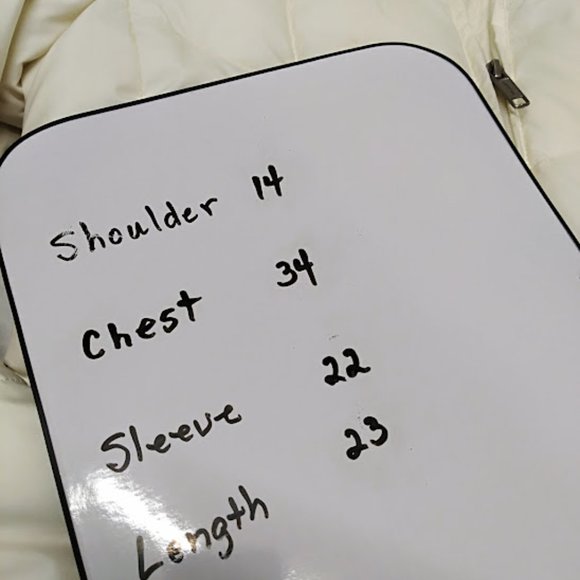 Shoulder 14
Chest 34
Sleeve 22
Length 23